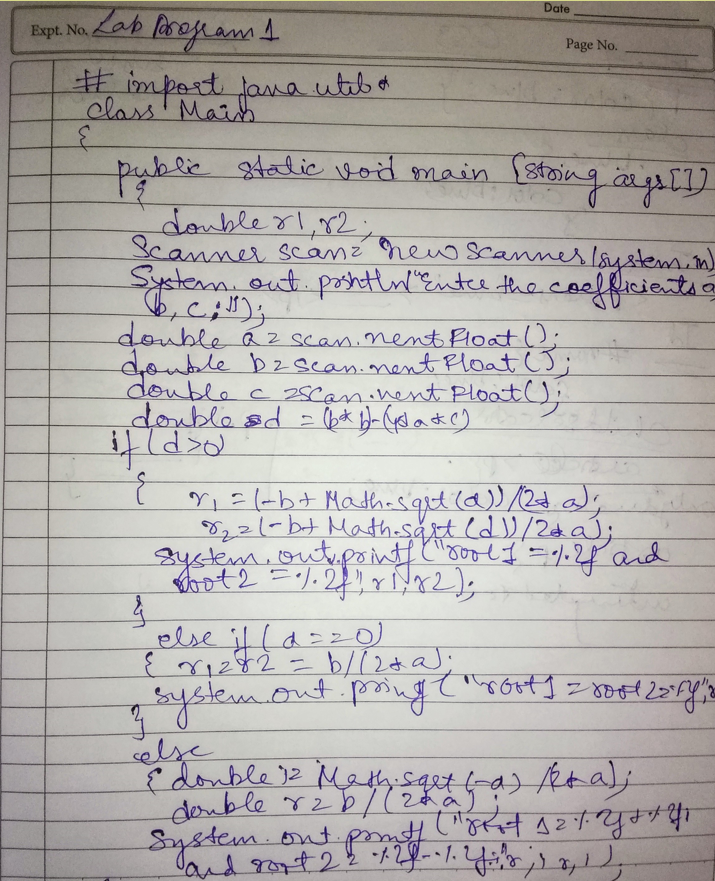 Date
Expt. No. Lab Program 1
Page No.
# import java util *
class Main
{
public static void main (string args[])
{
double r1, r2;
Scanner scan = new Scanner (system.in)
System. out. println("Enter the coefficients a
b, c;");
double a = scan. next Float ();
double b = scan. next Float ();
double c = scan. next Float ();
double d = (b * b) - (4 * a * c)
if (d>0
{ r1 = (-b + Math.sqrt (d)) / (2 * a);
r2 = (-b + Math.sqrt (d)) / 2 * a);
system. out. printf ("root 1 = %.2f and
root 2 = %.2f", r1, r2);
}
else if (d == 0)
{ r1 = r2 = b / (2 * a);
system. out. pring ("root 1 = root 2 =
}
else
{ double i = Math.sqrt (-d) / (2 * a);
double r = b / (2 * a);
System. out. printf ("root 1 = %.2f + %.2fi
and root 2 = %.2f - %.2f